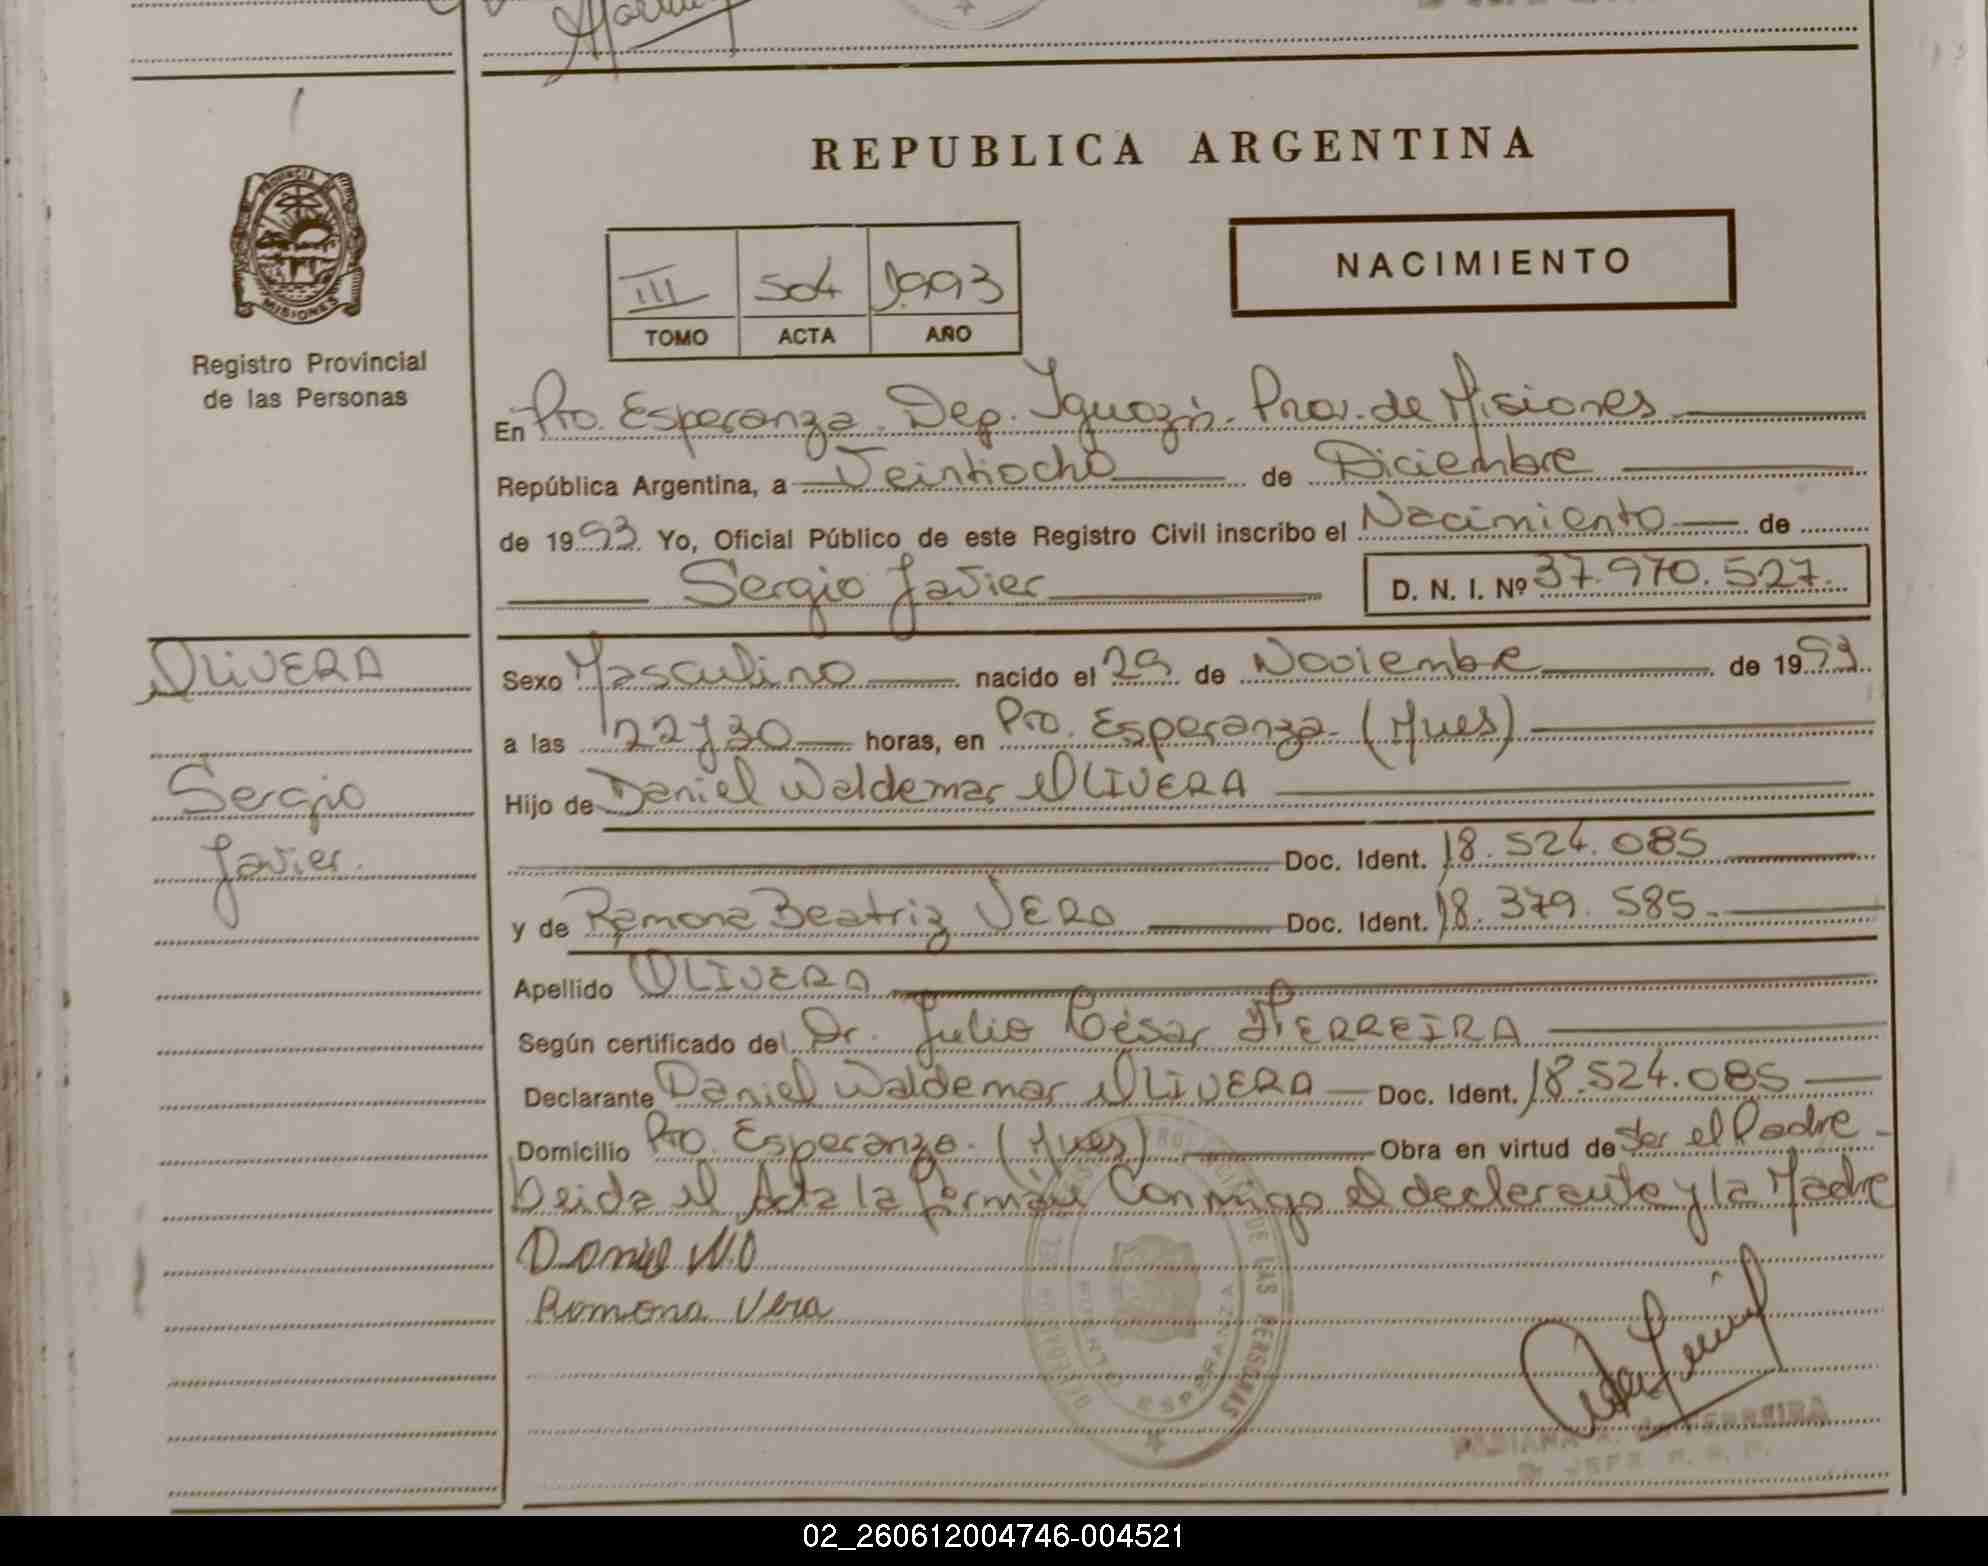 REPUBLICA ARGENTINA
PROVINCIA DE
MISIONES
Registro Provincial
de las Personas
III 504 1993
TOMO ACTA AÑO
NACIMIENTO
En Pto. Esperanza. Dep. Iguazú. Prov. de Misiones
República Argentina, a Veintiocho de Diciembre
de 1993 Yo, Oficial Público de este Registro Civil inscribo el Nacimiento de
Sergio Javier D. N. I. Nº 37.970.527.
OLIVERA
Sergio
Javier.
Sexo Masculino nacido el 29 de Noviembre de 1993
a las 22y30 horas, en Pto. Esperanza. (Mnes)
Hijo de Daniel Waldemar OLIVERA
Doc. Ident. 18.524.085
y de Ramona Beatriz VERA Doc. Ident. 18.379.585.
Apellido OLIVERA
Según certificado del Dr. Julio César FERREIRA
Declarante Daniel Waldemar OLIVERA Doc. Ident. 18.524.085
Domicilio Pto. Esperanza. (Mnes) Obra en virtud de Ser el Padre
Leida el Acta la firman Conmigo el declarante y la Madre
Daniel W.O
Ramona Vera
DE LAS PERSONAS
ESPERANZA
FERREIRA
JEFE R. P.
02_260612004746-004521